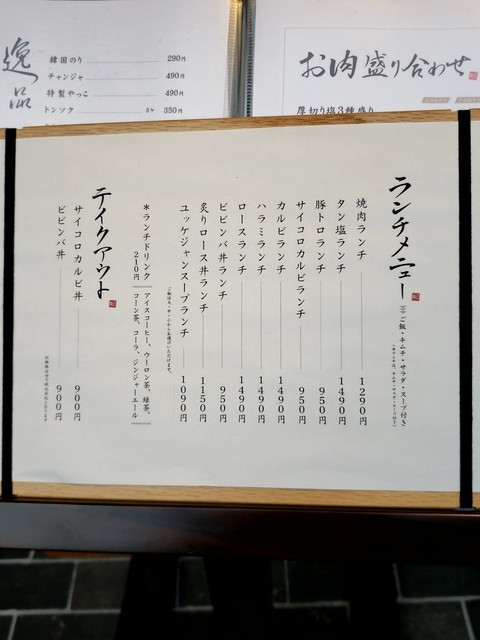 逸品
韓国のり 290円
チャンジャ 490円
特製やっこ 490円
トンソク 350円
お肉盛り合わせ
厚切り塩3種盛り
ランチメニュー
ご飯・キムチ・サラダ・スープ付き
焼肉ランチ 1290円
タン塩ランチ 1490円
豚トロランチ 950円
サイコロカルビランチ 950円
カルビランチ 1490円
ハラミランチ 1490円
ロースランチ 1490円
ビビンバ丼ランチ 950円
炙りロース丼ランチ 1150円
ユッケジャンスープランチ 1090円
*ランチドリンク 210円
アイスコーヒー、ウーロン茶、緑茶、
コーン茶、コーラ、ジンジャーエール
テイクアウト
サイコロカルビ丼 900円
ビビンバ丼 900円